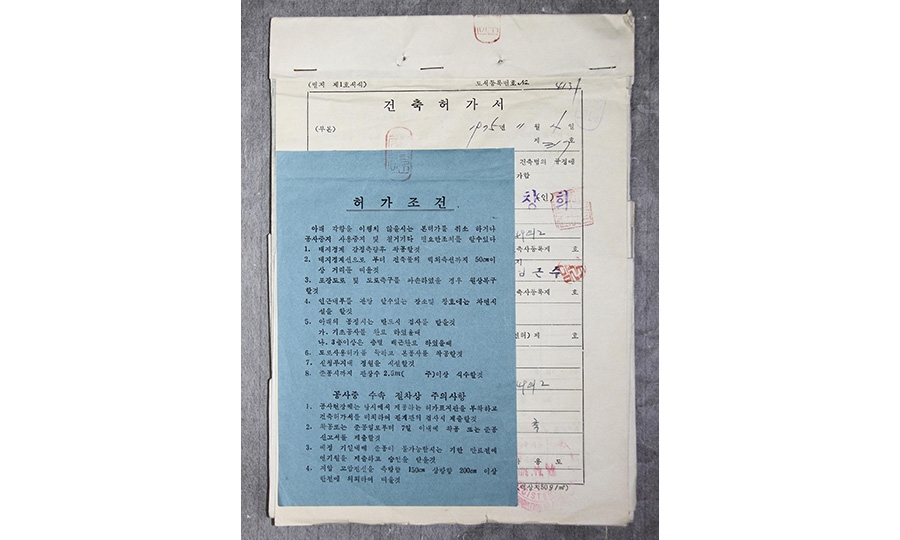 (별지 제1호서식)
도시등록번호 No. 4139
건축허가서
(부본)
1975년 11월 일
제 호
건축법의 규정에
가함
창희 (인)
축사등록제 호
김근수
축사등록제 호
제 호
축
용도
허가조건
아래 각항을 이행치 않을시는 본허가를 취소 하거나
공사중지 사용중지 및 철거기타 필요한조치를 할수있다
1. 대지경계 감정측량후 착공할것
2. 대지경계선으로 부터 건축물의 벽외측선까지 50cm이
상 거리를 띄울것
3. 포장도로 및 도로측구를 파손하였을 경우 원상복구
할것
4. 인근내부를 관망 할수있는 장소및 창호에는 차면시
설을 할것
5. 아래의 공정시는 반드시 검사를 받을것
가. 기초공사를 완료 하였을때
나. 3층이상은 층별 배근완료 하였을때
6. 도로사용허가를 득하고 본공사를 착공할것
7. 신청부지내 정원을 시설할것
8. 준공시까지 관상수 2.5m( 주)이상 식수할것
공사중 수속 절차상 주의사항
1. 공사현장에는 당시에서 제공하는 허가표지판을 부착하고
건축허가서를 비치하여 관계관의 검사시 제출할것
2. 착공또는 준공일로부터 7일 이내에 착공 또는 준공
신고서를 제출할것
3. 지정 기일내에 준공이 불가능한시는 기한 만료전에
연기원을 제출하고 승인을 받을것
4. 저압 고압전선은 측방향 150cm 상방향 200cm 이상
안전에 위치하여 띄울것